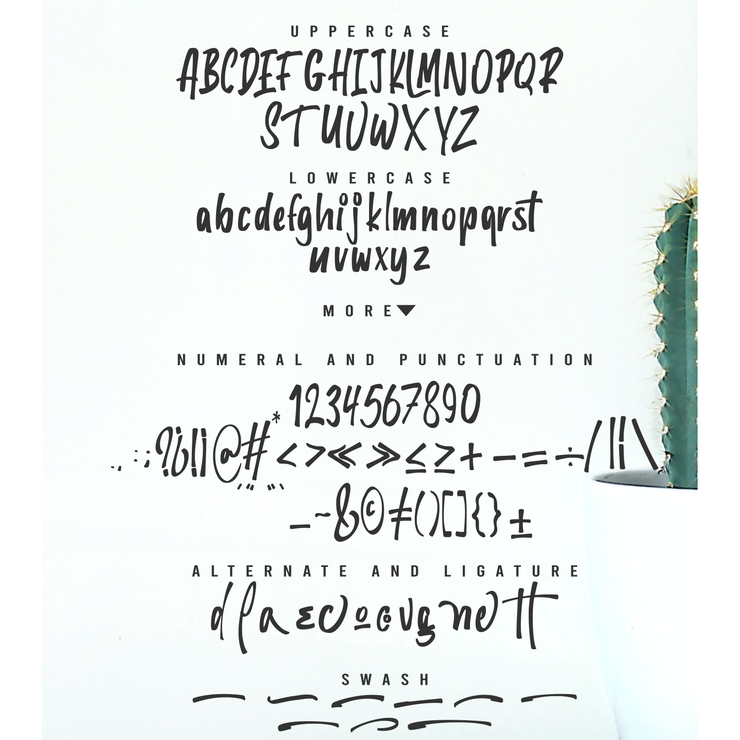 UPPERCASE
ABCDEFGHIJKLMNOPQR
STUVWXYZ
LOWERCASE
abcdefghijklmnopqrst
uvwxyz
MORE▼
NUMERAL AND PUNCTUATION
1234567890
., :; ?¿!¡ @# * <>«»≤≥+-=÷/|¦\
'"'"
_~&©≠()[]{}±
ALTERNATE AND LIGATURE
SWASH